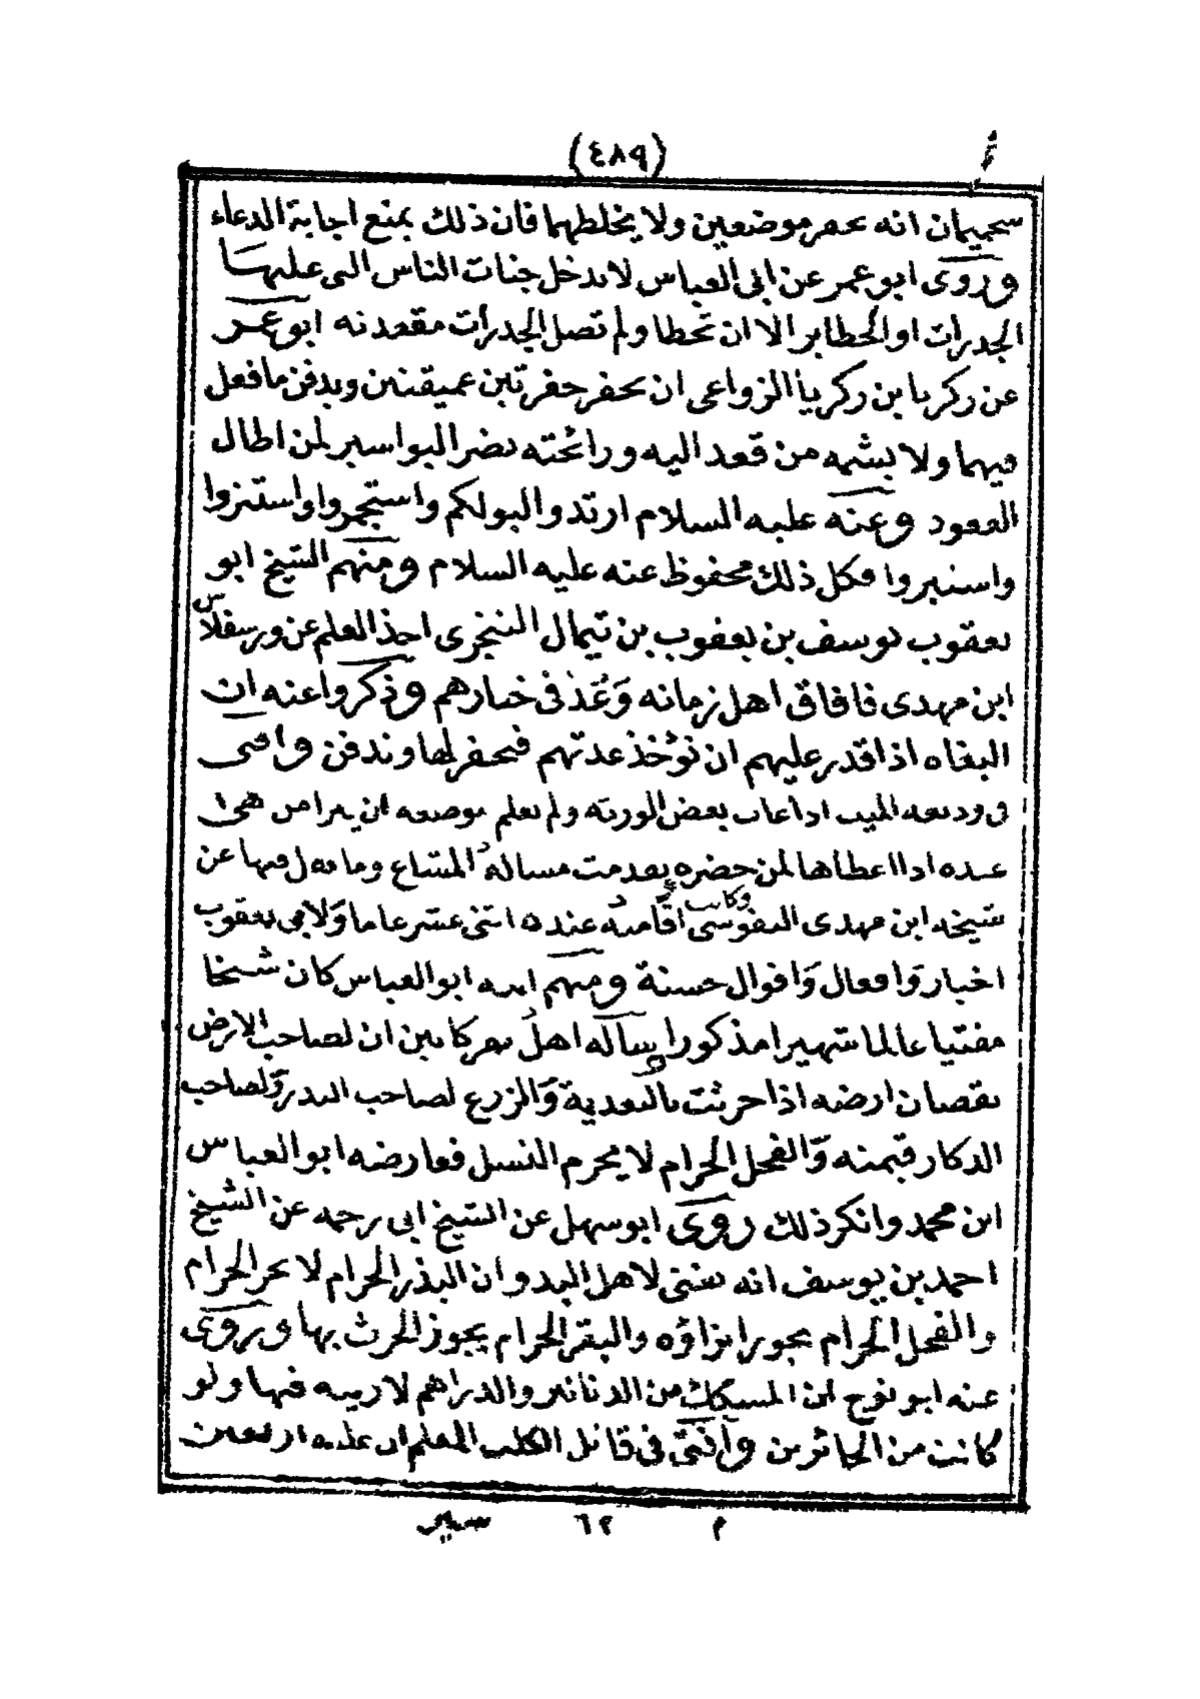 (٤٨٩)
سحميمان انه يحفر موضعين ولا يخلطهما فان ذلك يمنع اجابة الدعاء
وروى ابو عمر عن ابى العباس لا ندخل جنات الناس التى عليها
الجدرات او الحطاير الا ان تخطا ولم تصل الجدرات مقعدته ابو عمر
عن زكريا بن زكريا الزواعى ان يحفر حفرتين عميقتين ويدفن ما فعل
فيهما ولا يشمه من قعد اليه ورائحته تضر البواسير لمن اطال
القعود وعنه عليه السلام ارتدوا لبولكم واستجمروا واستنزوا
واستبروا فكل ذلك محفوظ عنه عليه السلام ومنهم الشيخ ابو
يعقوب يوسف بن يعقوب بن تيمال اخذ العلم عن ورسفلاس
ابن مهدى ففاق اهل زمانه وعد فى خيارهم وذكروا عنه ان
البغاه اذا قدر عليهم ان تؤخذ عدتهم فيحفر لها وتدفن وافتى
فى وديعه الميت اذا غاب بعض الورثه ولم يعلم موضعه ان يبرا من هى
عنده اذا اعطاها لمن حضره بعد مسالة المشاع وما فيها عن
شيخه ابن مهدى النفوسى وكانت اقامته عنده اثنى عشر عاما ولابى يعقوب
اخبار وافعال واقوال حسنة ومنهم ابنه ابو العباس كان شيخا
مفتيا عالما شهيرا مذكورا ساله اهل ان لصاحب الارض
نقصان ارضه اذا حرثت بالتعدية والزرع لصاحب البذر ولصاحب
الدكار قيمته والفحل الحرام لا يحرم النسل فعارضه ابو العباس
ابن محمد وانكر ذلك روى ابو سهل عن الشيخ ابى رحمه عن الشيخ
احمد بن يوسف انه يفتى لاهل البدو ان البذر الحرام لا يجر الحرام
والفحل الحرام يجوز انزاؤه والبقر الحرام يجوز الحرث بها وروى
عنه ابو نوح ان المسكك من الدنانير والدراهم لا ريبه فيها ولو
كانت من الجائرين وافتى فى قاتل الكلب المعلم ان عليه اربعين
م ٦٢ سير